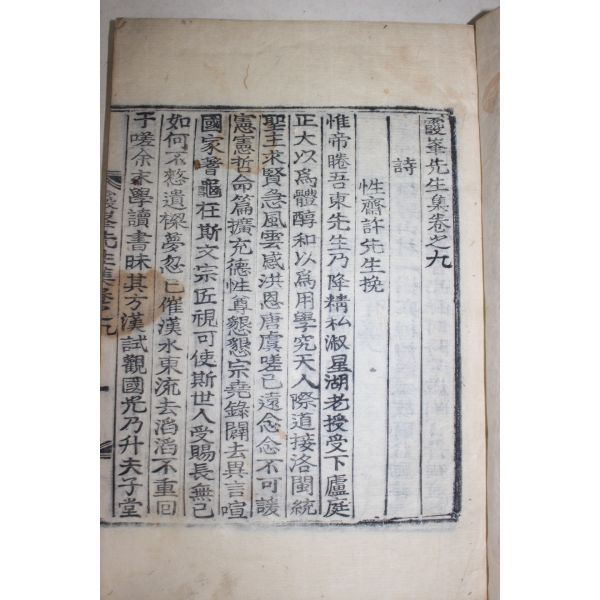 霞峯先生集卷之九
詩
性齋許先生挽
惟帝睠吾東先生乃降精私淑星湖老授受下廬庭
正大以爲體醇和以爲用學究天人際道接洛閩統
聖主求賢急風雲感洪恩唐虞嗟已遠念念不可諼
憲憲哲命篇擴充德性尊懇懇宗堯錄闢去異言喧
國家蓍龜在斯文宗匠視可使斯世人受賜長無已
如何不憖遺樑夢忽已催漢水東流去滔滔不重回
于嗟余末學讀書昧其方漢試觀國光乃升夫子堂
霞峯先生集卷之九